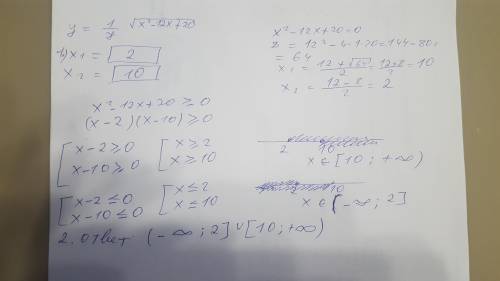 y = 1/y √x²-12x+20
1) x₁ = 2
x₂ = 10
x²-12x+20 ≥ 0
(x-2)(x-10) ≥ 0
[ x-2 ≥ 0 [ x ≥ 2
x-10 ≥ 0 x ≥ 10
[ x-2 ≤ 0 [ x ≤ 2
x-10 ≤ 0 x ≤ 10
2. ответ (-∞; 2] ∪ [10; +∞)
x²-12x+20=0
= 12²-4·1·20=144-80=
= 64
x₁ = (12+√64)/2 = (12+8)/2 = 10
x₂ = (12-8)/2 = 2
2 10
x ∈ [10; +∞)
10
x ∈ [-∞; 2]